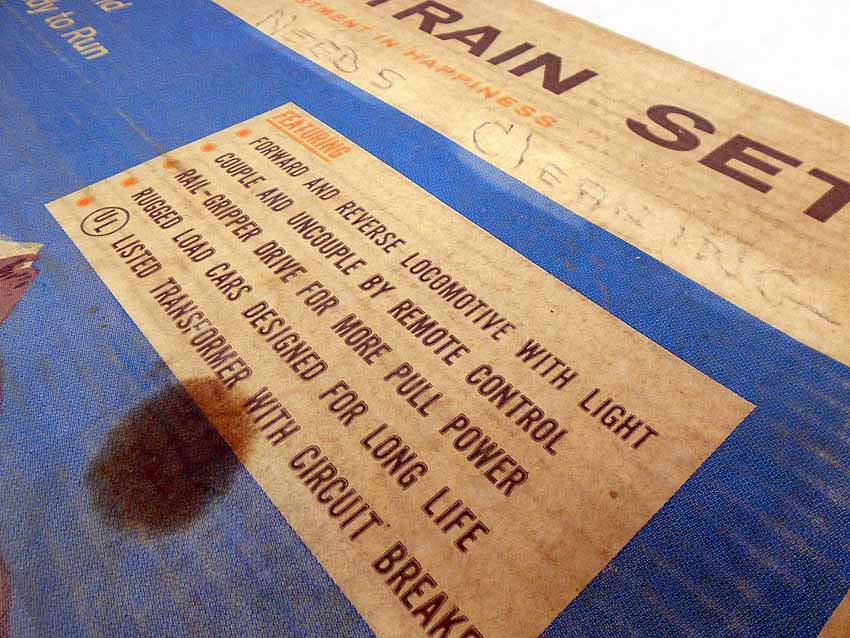 nd
dy to Run
TRAIN SET
STMENT IN HAPPINESS
NEEDS
CLEANING
FEATURING
FORWARD AND REVERSE LOCOMOTIVE WITH LIGHT
COUPLE AND UNCOUPLE BY REMOTE CONTROL
RAIL-GRIPPER DRIVE FOR MORE PULL POWER
RUGGED LOAD CARS DESIGNED FOR LONG LIFE
UL LISTED TRANSFORMER WITH CIRCUIT BREAKE